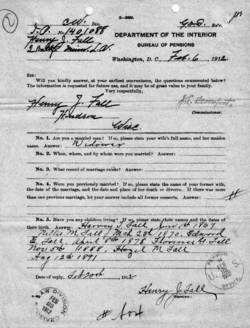 3—389.
C.W. Div.
DEPARTMENT OF THE INTERIOR
Henry J. Fall
BUREAU OF PENSIONS
Washington, D. C., Feb. 6, 1912
Will you kindly answer, at your earliest convenience, the questions enumerated below? The
information is requested for future use, and it may be of great value to your family.
Very respectfully,
Henry J. Fall
Hudson
Commissioner.
Wisc
No. 1. Are you a married man? If so, please state your wife's full name, and her maiden
name. Answer: Widower
No. 2. When, where, and by whom were you married? Answer:
No. 3. What record of marriage exists? Answer:
No. 4. Were you previously married? If so, please state the name of your former wife,
the date of the marriage, and the date and place of her death or divorce. If there was
more than one previous marriage, let your answer include all former wives. Answer:
No. 5. Have you any children living? If so, please state their names and the dates
of their birth. Answer: Harvey L Fall 1867
Fall, 1870, Edward
E. Fall, April 8th 1878 Florence G Fall
Nov 5th 1888 Hazel M Fall
Aug 12th 1891
Date of reply, 1912
Henry J. Fall